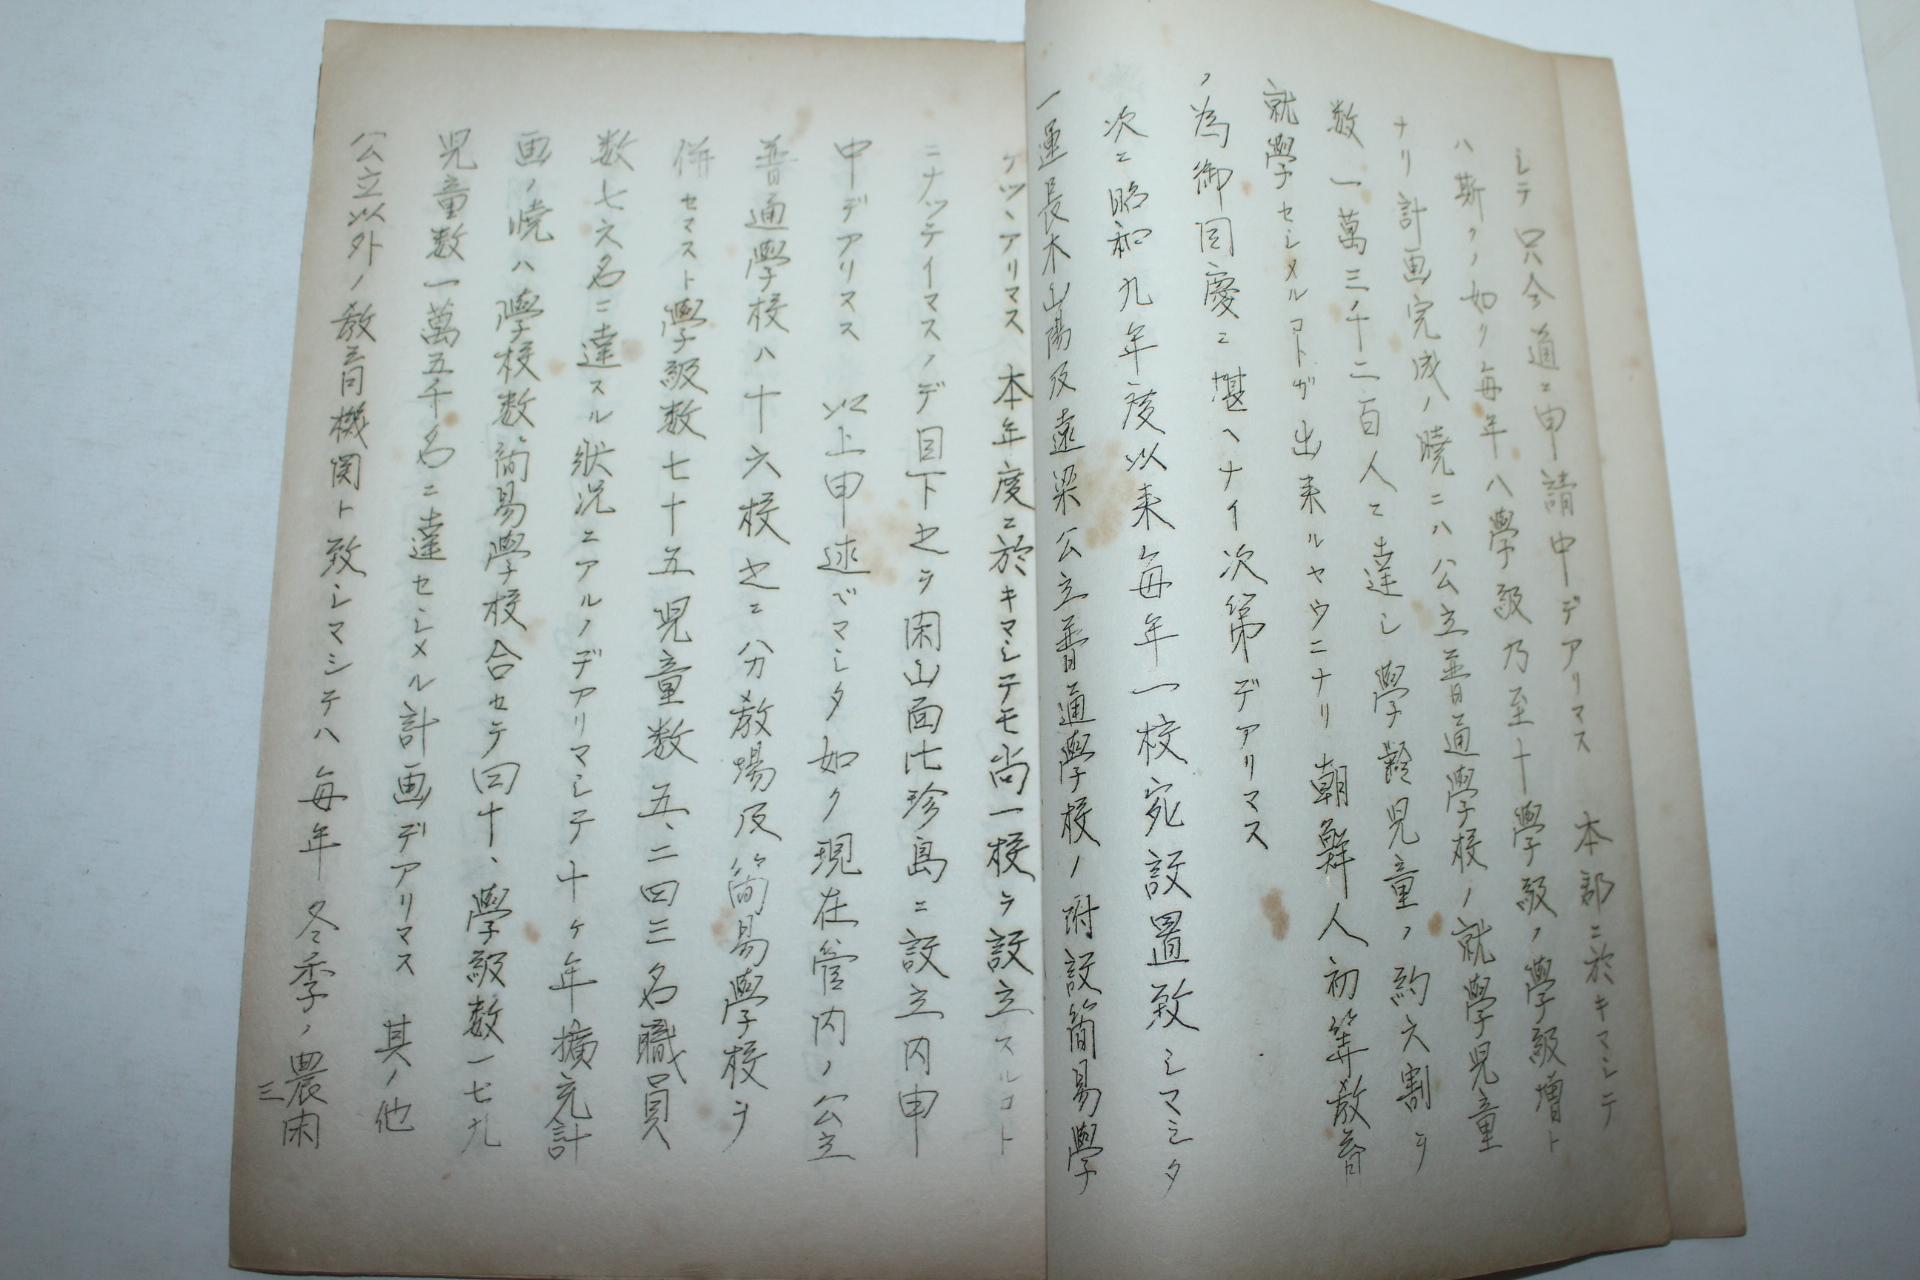 シテ只今通ニ申請中デアリマス　本郡ニ於キマシテ
ハ斯クノ如ク毎年八學級乃至十學級ノ學級増ト
ナリ計画完成ノ曉ニハ公立普通學校ノ就學児童
数一萬三千二百人ニ達シ學齡児童ノ約六割ヲ
就學セシメルコトガ出来ルヤウニナリ朝鮮人初等教育
ノ為御同慶ニ堪ヘナイ次第デアリマス
次ニ昭和九年度以来毎年一校宛設置致シマシタ
一運長木山陽及遠梁公立普通學校ノ附設簡易學
本年度ニ於キマシテモ尚一校ヲ設立スルコト
ニナッテイマスノデ目下之ヲ閑山面比珍島ニ設立内申
中デアリマス　以上申述ベマシタ如ク現在管内ノ公立
普通學校ハ十六校之ニ分教場及簡易學校ヲ
併セマスト學級数七十五児童数五、二四三名職員
数七六名ニ達スル狀況ニアルノデアリマシテ十ヶ年擴充計
画ノ曉ハ學校数簡易學校合セテ四十、學級数一七九
児童数一萬五千名ニ達セシメル計画デアリマス　其ノ他
公立以外ノ教育機関ト致シマシテハ毎年冬季ノ農閑
三